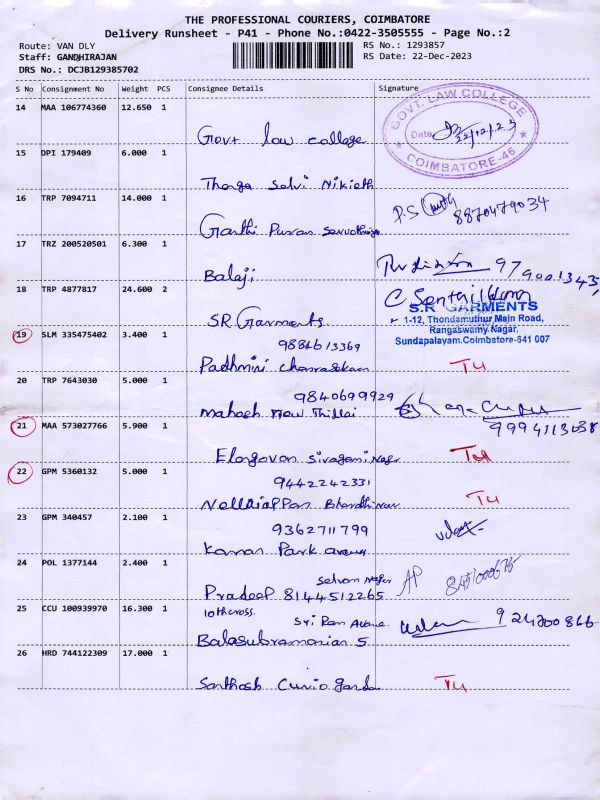 THE PROFESSIONAL COURIERS, COIMBATORE
Delivery Runsheet - P41 - Phone No.:0422-3505555 - Page No.:2
Route: VAN DLY
RS No.: 1293857
Staff: GANDHIRAJAN
RS Date: 22-Dec-2023
DRS No.: DCJB129385702
S No Consignment No Weight PCS Consignee Details Signature
14 MAA 106774360 12.650 1
Govt law college
GOVT. LAW COLLEGE
Date
22/12/23
COIMBATORE-46
15 DPI 179409 6.000 1
Thenga Selvi
16 TRP 7094711 14.000 1
P.S
8870479034
17 TRZ 200520501 6.300 1
Balaji
18 TRP 4877817 24.600 2
SR Garments
S.R GARMENTS
1-12, Thondamuthur Main Road,
Rangaswamy Nagar,
Sundapalayam.Coimbatore-641 007
9884613369
19 SLM 335475402 3.400 1
Padhmini
TU
9840699929
20 TRP 7643030 5.000 1
Mahesh
9994113038
21 MAA 573027766 5.900 1
Elangovan Sivagami Nagar
TU
9442242331
22 GPM 5360132 5.000 1
Nellaiappan
TU
9362711799
23 GPM 340457 2.100 1
Kannan Park
Selvan Nagar
24 POL 1377144 2.400 1
Pradeep 8144512265
AP
10th cross.
Sri Ram
25 CCU 100939970 16.300 1
Balasubramanian S
26 HRD 744122309 17.000 1
Santhosh
TU